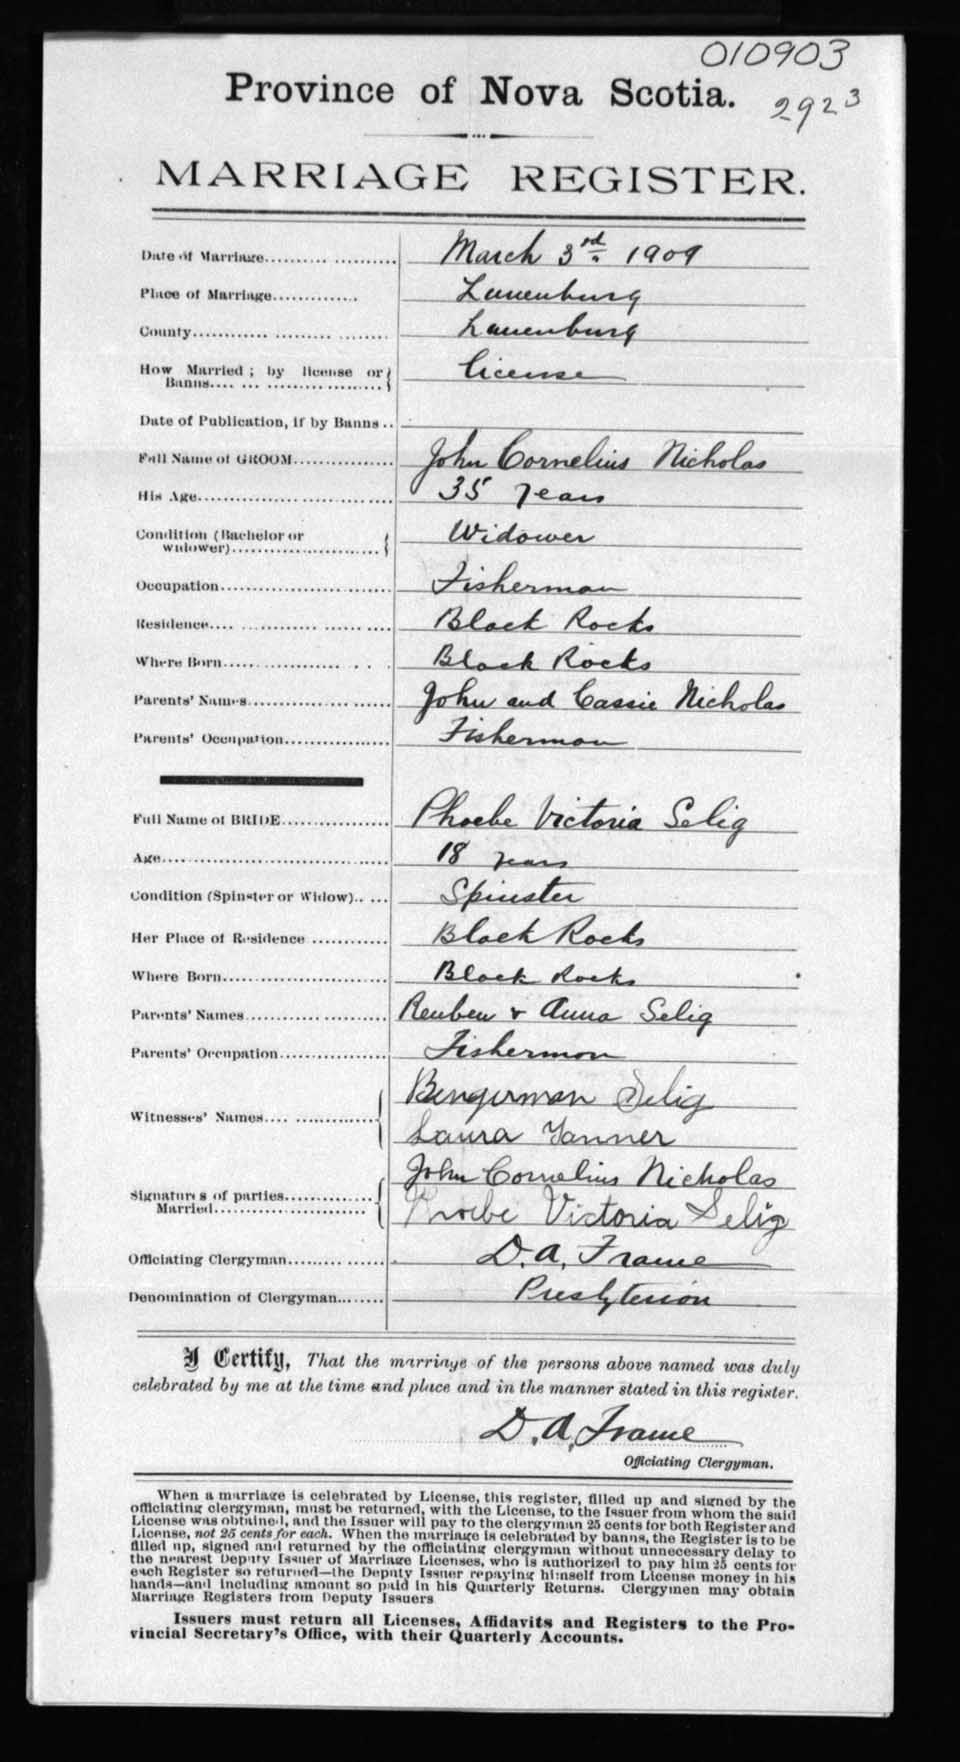 010903
Province of Nova Scotia.
2923
MARRIAGE REGISTER.
Date of Marriage.................. March 3rd 1909
Place of Marriage............. Lunenburg
County.................. Lunenburg
How Married ; by license or Banns.................. License
Date of Publication, if by Banns..
Full Name of GROOM............... John Cornelius Nicholas
His Age.................. 35 years
Condition (Bachelor or widower).................. Widower
Occupation.................. Fisherman
Residence.................. Black Rocks
Where Born.................. Black Rocks
Parents' Names.................. John and Cassie Nicholas
Parents' Occupation............... Fisherman
Full Name of BRIDE............... Phoebe Victoria Selig
Age.................. 18 years
Condition (Spinster or Widow)..... Spinster
Her Place of Residence ............ Black Rocks
Where Born.................. Black Rocks
Parents' Names.................. Reuben & Anna Selig
Parents' Occupation............... Fisherman
Witnesses' Names.................. Bengerman Selig
Laura Tanner
Signatures of parties Married.................. John Cornelius Nicholas
Phoebe Victoria Selig
Officiating Clergyman............... D. A. Frame
Denomination of Clergyman........ Presbyterian
I Certify, That the marriage of the persons above named was duly
celebrated by me at the time and place and in the manner stated in this register.
D. A. Frame
Officiating Clergyman.
When a marriage is celebrated by License, this register, filled up and signed by the
officiating clergyman, must be returned, with the License, to the Issuer from whom the said
License was obtained, and the Issuer will pay to the clergyman 25 cents for both Register and
License, not 25 cents for each. When the marriage is celebrated by banns, the Register is to be
filled up, signed and returned by the officiating clergyman without unnecessary delay to
the nearest Deputy Issuer of Marriage Licenses, who is authorized to pay him 25 cents for
each Register so returned—the Deputy Issuer repaying himself from License money in his
hands—and including amount so paid in his Quarterly Returns. Clergymen may obtain
Marriage Registers from Deputy Issuers
Issuers must return all Licenses, Affidavits and Registers to the Pro-
vincial Secretary's Office, with their Quarterly Accounts.